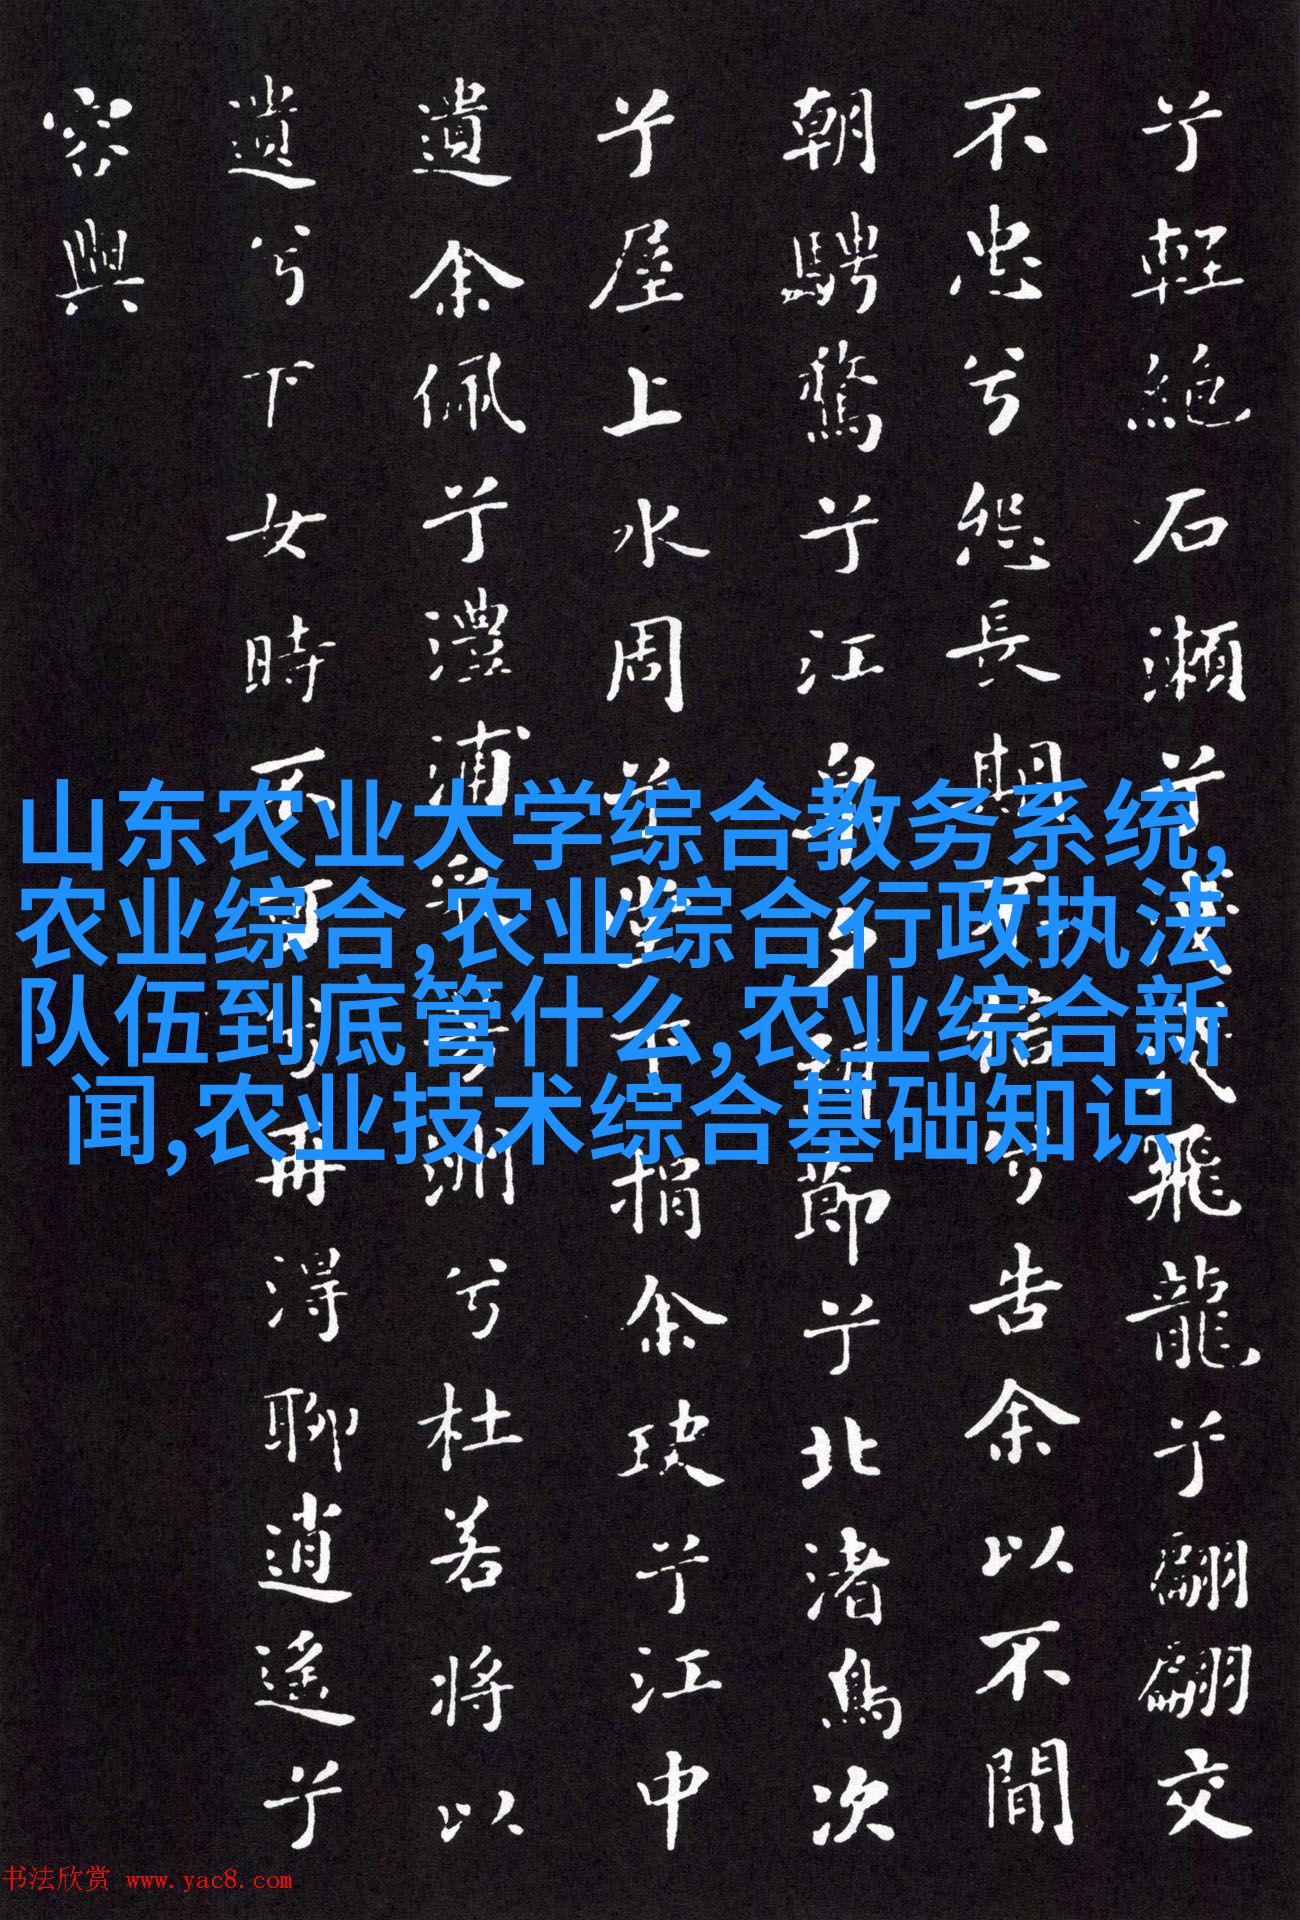 兮輕絕石瀨兮淺淺飛龍兮翩翩交
不忠兮怨長期不信兮告余以不閒
朝騁騖兮江皋夕弭節兮北渚鳥次
兮屋上水周兮堂下捐余玦兮江中
遺余佩兮澧浦采芳洲兮杜若將以
遺兮下女時不可兮再得聊逍遙兮
容與
山东农业大学综合教务系统,
农业综合,农业综合行政执法
队伍到底管什么,农业综合新
闻,农业技术综合基础知识
书法欣赏 www.yac8.com